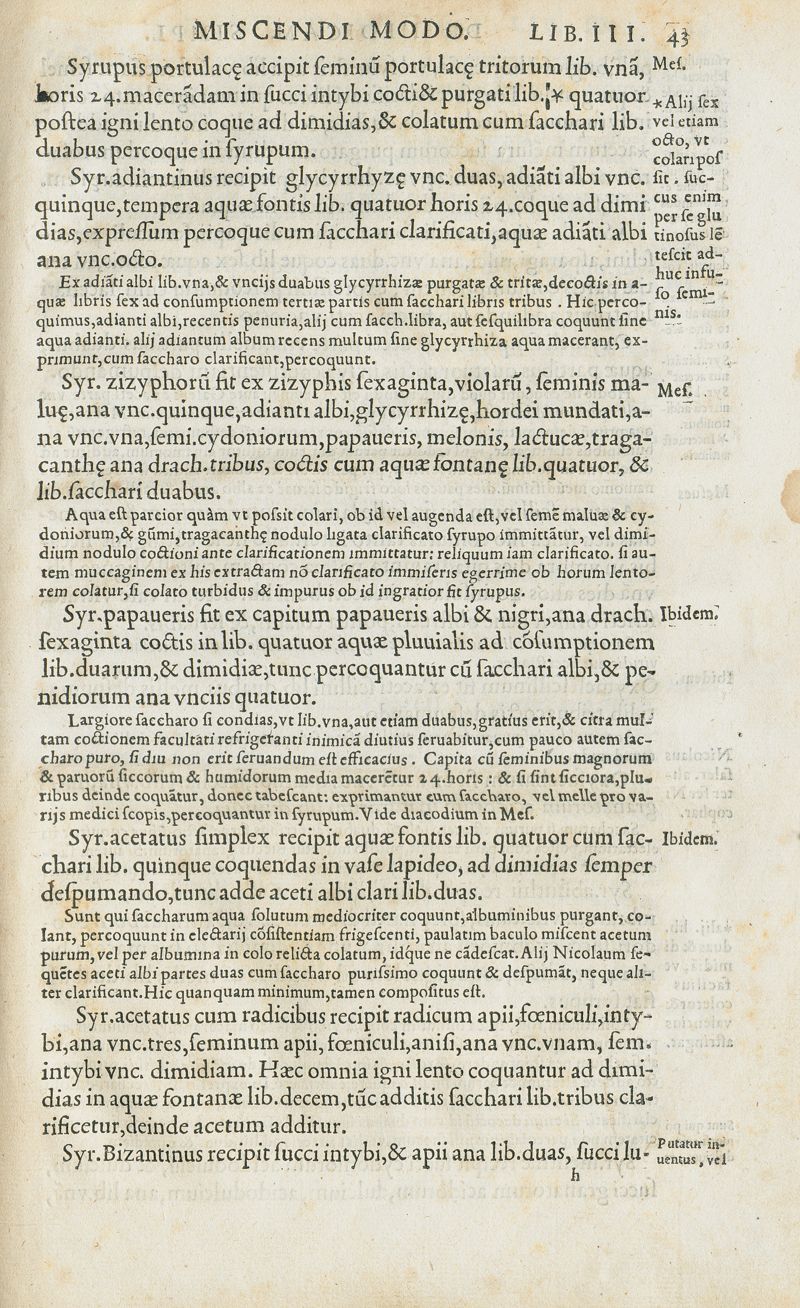 MISCENDI MODO. LIB. III. 43
Syrupus portulacę accipit ſeminũ portulacę tritorum lib. vnã, Meſ.
horis 24.macerãdam in ſucci intybi cocti & purgati lib.* quatuor *Alij ſex
poſtea igni lento coque ad dimidias,& colatum cum ſacchari lib. vel etiam
duabus percoque in ſyrupum. octo, vt
colari poſ
Syr.adiantinus recipit glycyrrhyzę vnc. duas, adiãti albi vnc. ſit . ſuc-
quinque,tempera aquæ fontis lib. quatuor horis 24.coque ad dimi cus enim
per ſe glu
dias,expreſſum percoque cum ſacchari clarificati,aquæ adiãti albi tinoſus lẽ
ana vnc.octo. teſcit ad-
huc infu-
Ex adiãti albi lib.vna,& vncijs duabus glycyrrhizæ purgatæ & tritæ,decoctis in a-
quæ libris ſex ad conſumptionem tertiæ partis cum ſacchari libris tribus . Hic perco- ſo ſemi-
quimus,adianti albi,recentis penuria,alij cum ſacch.libra, aut ſeſquilibra coquunt ſine nis.
aqua adianti. alij adiantum album recens multum ſine glycyrrhiza aqua macerant, ex-
primunt,cum ſaccharo clarificant,percoquunt.
Syr. zizyphorũ fit ex zizyphis ſexaginta,violarũ, ſeminis ma- Meſ.
luę,ana vnc.quinque,adianti albi,glycyrrhizę,hordei mundati,a-
na vnc.vna,ſemi.cydoniorum,papaueris, melonis, lactucæ,traga-
canthę ana drach.tribus, coctis cum aquæ fontanę lib.quatuor, &
lib.ſacchari duabus.
Aqua eſt parcior quàm vt poſsit colari, ob id vel augenda eſt,vel ſemẽ maluæ & cy-
doniorum,& gũmi,tragacanthę nodulo ligata clarificato ſyrupo immittãtur, vel dimi-
dium nodulo coctioni ante clarificationem immittatur: reliquum iam clarificato. ſi au-
tem muccaginem ex his extractam nõ clarificato immiſeris egerrime ob horum lento-
rem colatur,ſi colato turbidus & impurus ob id ingratior fit ſyrupus.
Syr.papaueris fit ex capitum papaueris albi & nigri,ana drach. Ibidem.
ſexaginta coctis in lib. quatuor aquæ pluuialis ad cõſumptionem
lib.duarum,& dimidiæ,tunc percoquantur cũ ſacchari albi,& pe-
nidiorum ana vnciis quatuor.
Largiore ſaccharo ſi condias,vt lib.vna,aut etiam duabus,gratius erit,& citra mul-
tam coctionem facultati refrigeranti inimicã diutius ſeruabitur,cum pauco autem ſac-
charo puro, ſi diu non erit ſeruandum eſt efficacius . Capita cũ ſeminibus magnorum
& paruorũ ſiccorum & humidorum media macerẽtur 24.horis : & ſi ſint ſicciora,plu-
ribus deinde coquãtur, donec tabeſcant: exprimantur cum ſaccharo, vel melle pro va-
rijs medici ſcopis,percoquantur in ſyrupum.Vide diacodium in Meſ.
Syr.acetatus ſimplex recipit aquæ fontis lib. quatuor cum ſac- Ibidem.
chari lib. quinque coquendas in vaſe lapideo, ad dimidias ſemper
deſpumando,tunc adde aceti albi clari lib.duas.
Sunt qui ſaccharum aqua ſolutum mediocriter coquunt,albuminibus purgant, co-
lant, percoquunt in electarij cõſiſtentiam frigeſcenti, paulatim baculo miſcent acetum
purum,vel per albumina in colo relicta colatum, idq́ue ne cãdeſcat.Alij Nicolaum ſe-
quẽtes aceti albi partes duas cum ſaccharo puriſsimo coquunt & deſpumãt, neque ali-
ter clarificant.Hic quanquam minimum,tamen compoſitus eſt.
Syr.acetatus cum radicibus recipit radicum apii,fœniculi,inty-
bi,ana vnc.tres,ſeminum apii, fœniculi,aniſi,ana vnc.vnam, ſem.
intybi vnc. dimidiam. Hæc omnia igni lento coquantur ad dimi-
dias in aquæ fontanæ lib.decem,tũc additis ſacchari lib.tribus cla-
rificetur,deinde acetum additur.
Syr.Bizantinus recipit ſucci intybi,& apii ana lib.duas, ſucci lu- Putatur in-
uentus , vel
h